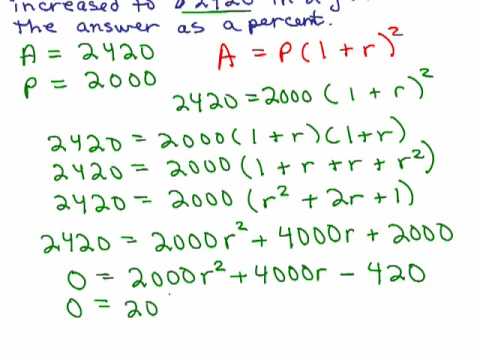 increased to $2420 in a
the answer as a percent.
A = 2420
P = 2000
A = P(1+r)²
2420 = 2000(1+r)²
2420 = 2000(1+r)(1+r)
2420 = 2000(1+r+r+r²)
2420 = 2000(r²+2r+1)
2420 = 2000r²+4000r+2000
0 = 2000r²+4000r-420
0 = 20